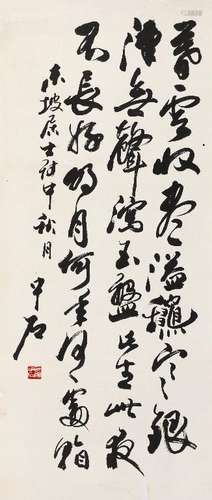 暮雲收盡溢清寒銀
漢無聲轉玉盤此生此夜
不長好明月明年何處看
东坡居士诗中秋月
中石